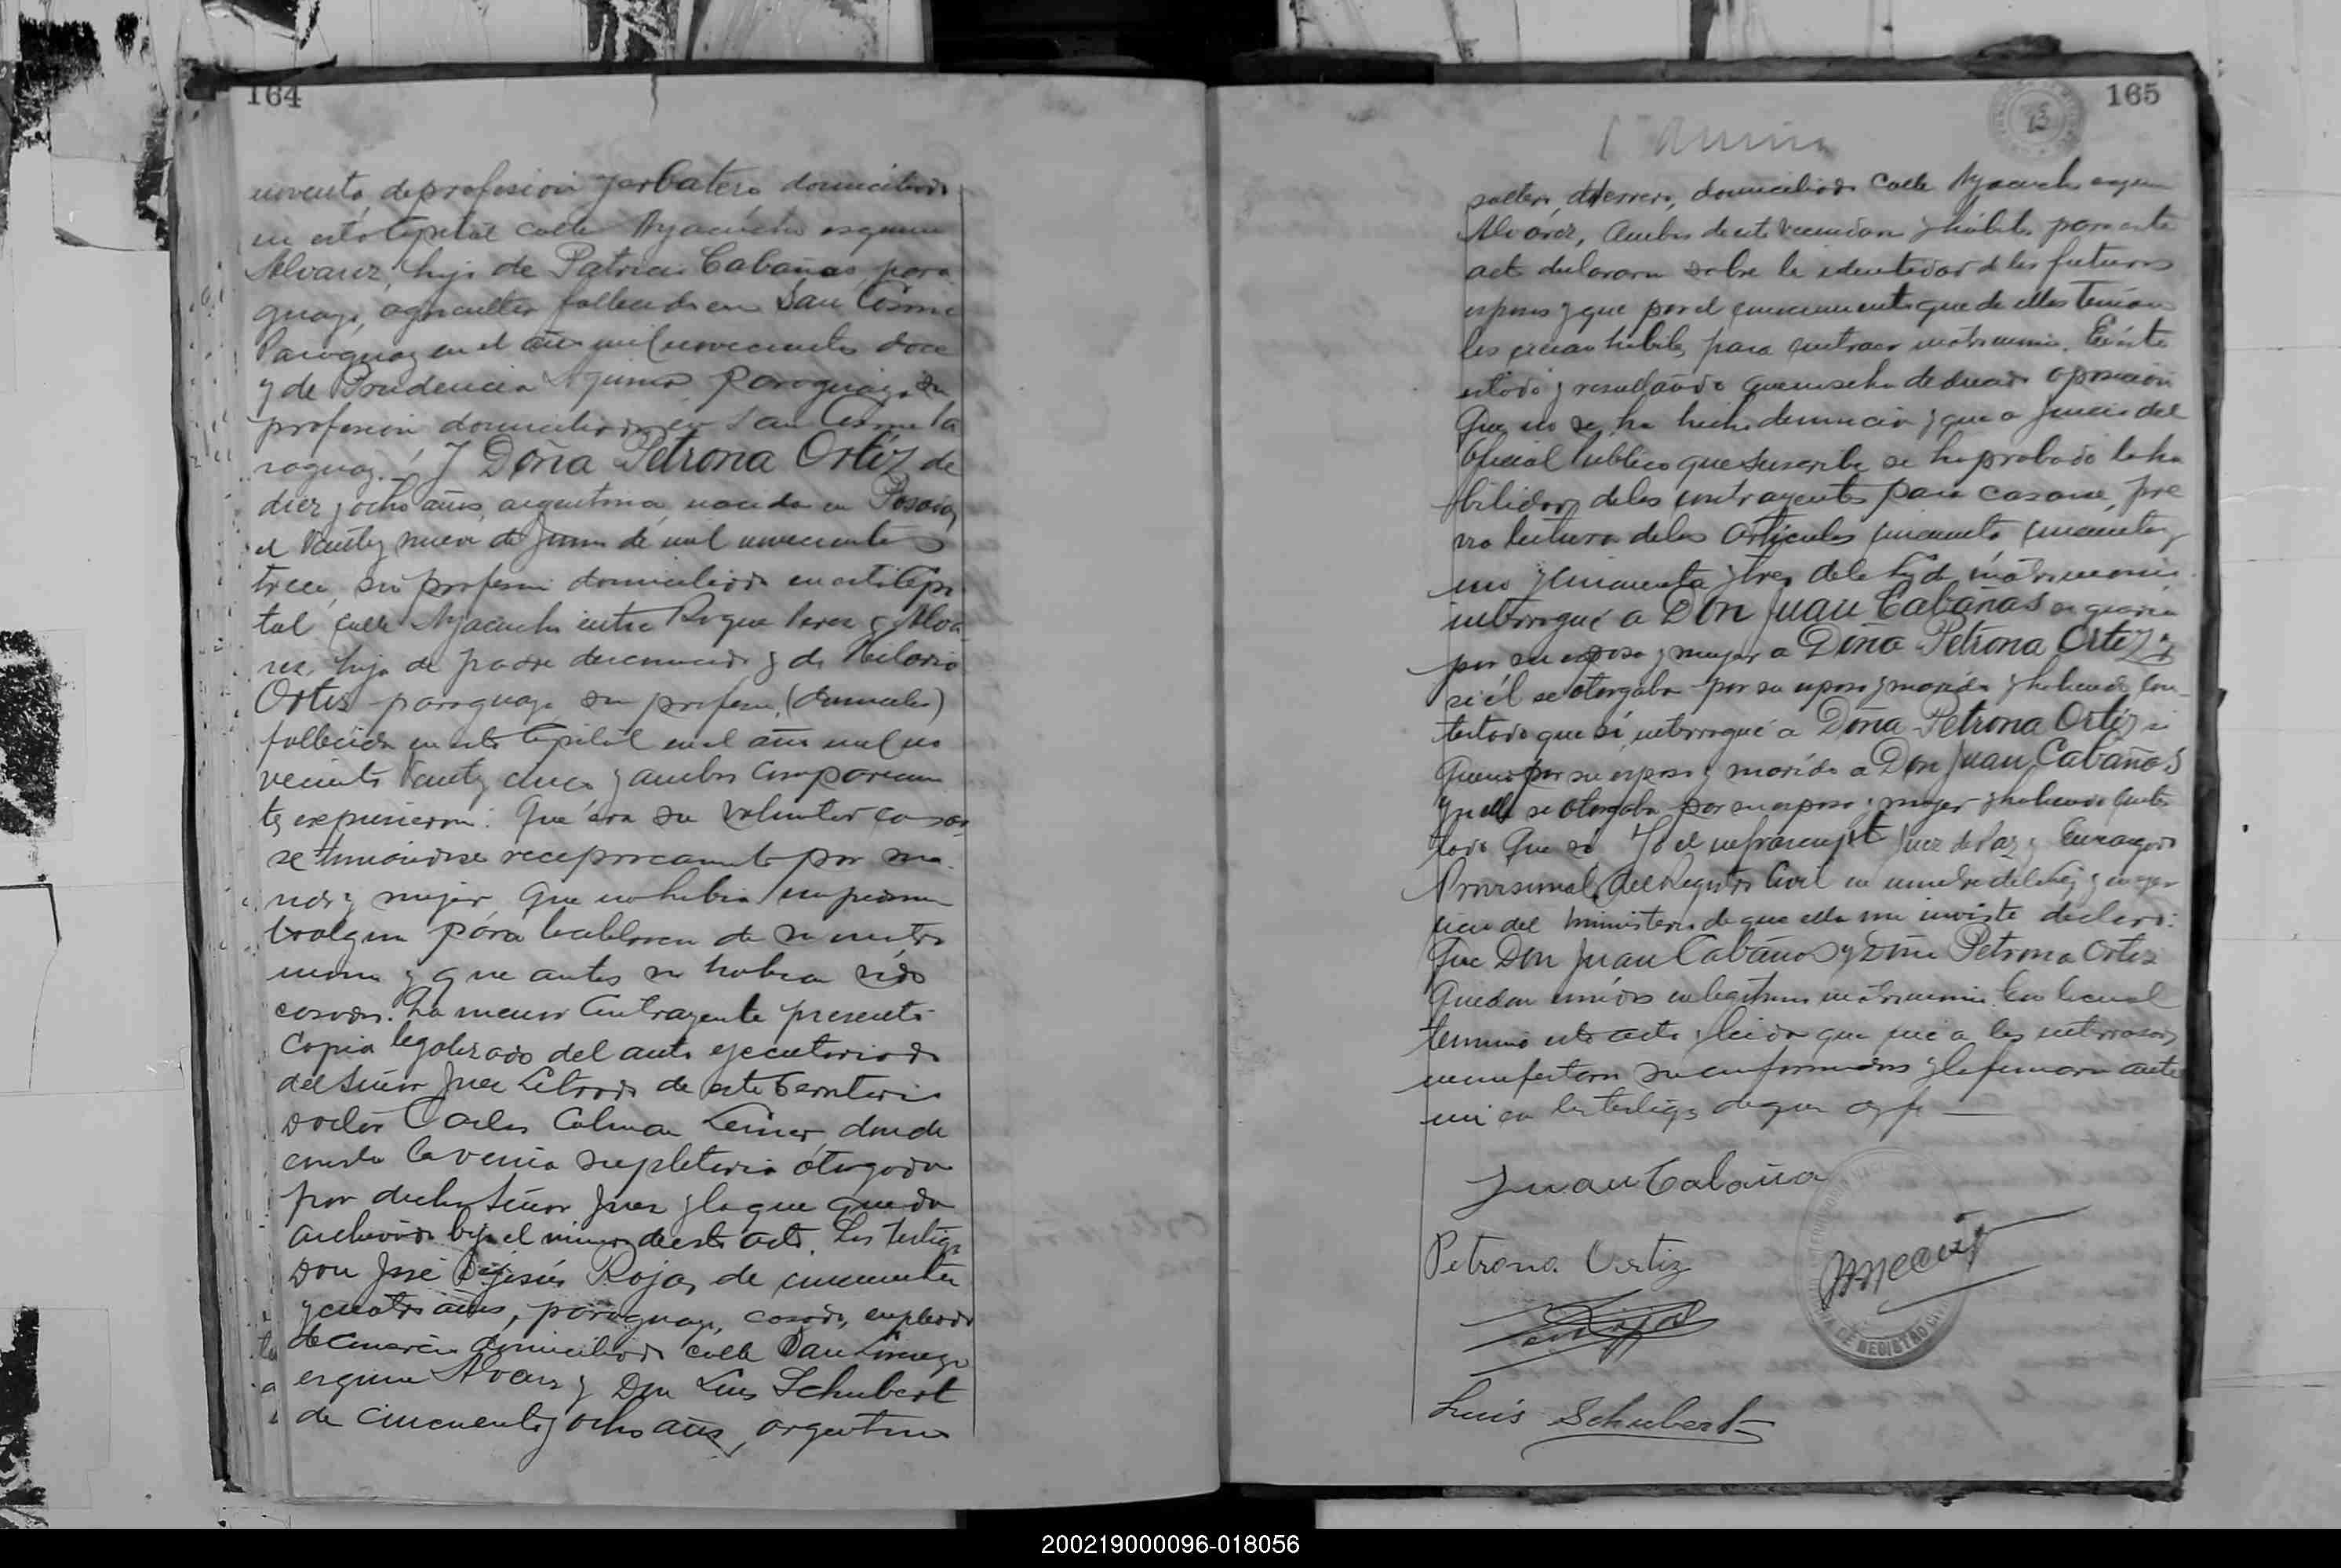 164
noventa, de profesion yerbatero, domiciliado
en esta Capital calle Ayacucho esquina
Alvarez, hijo de Patricio Cabañas, para-
guayo, agricultor fallecido en San Cosme
Paraguay en el año mil novecientos doce
y de Prudencia Aquino paraguaya, sin
profesion domiciliada en San Cosme Pa
raguay. Y Doña Petrona Ortíz de
diez y ocho años, argentina, nacida en Posadas
el veinte y nueve de Junio de mil novecientos
trece, sin profesion domiciliada en esta Capi
tal calle Ayacucho entre Roque Perez y Alva
rez, hija de padre desconocido y de Hilaria
Ortiz paraguaya sin profesion, (domestica)
fallecida en esta Capital en el año mil no
veciento veinte y cinco y ambos comparecien
tes expusieron: Que éra su voluntad casar
se tomándose reciprocamente por ma-
rido y mujer, que no habia impedimen
to algun para la celebracion de su matri
monio y que antes no habian sido
casados. La menor contrayente presentó
copia legalizada del auto ejecutoriado
del Señor Juez Letrado de este Territorio
doctor Carlos Colman Lerner, donde
consta la venia supletoria otorgada
por dicho Señor Juez y la que queda
archivada bajo el número de esta acta. Los testigos
Don José Dejesús Rojas, de cincuenta
y cuatro años, paraguayo, casado, empleado
de comercio domiciliado calle San Lorenzo
esquina Alvarez y Don Luis Schubert
de cincuenta y ocho años, argentino
165
soltero, herrero, domiciliado calle Ayacucho esquina
Alvarez, ambos de este vecindario y hábiles para este
acto declararon sobre la identidad de los futuros
esposos y que por el conocimiento que de ellos tenian
los creian hábiles para contraer matrimonio. En este
estado y resultando que no se ha deducido oposicion
Que no se ha hecho denuncia y que a juicio del
Oficial Público que suscribe se ha probado la ha
bilidad de los contrayentes para casarse, pre
via lectura de los Artículos cincuenta cincuenta y
uno y cincuenta y tres de la ley de matrimonio
interrogué a Don Juan Cabañas si queria
por su esposa y mujer a Doña Petrona Ortiz y
si él se otorgaba por su esposo y marido y habiendo con-
testado que sí, interrogué a Doña Petrona Ortiz si
queria por su esposo y marido a Don Juan Cabañas
y si ella se otorgaba por su esposa y mujer y habiendo contes
tado que sí Yo el infrascripto Juez de Paz y Encargado
Provisional del Registro Civil en nombre de la ley y en ejer
cicio del ministerio de que ella me inviste declaro:
Que Don Juan Cabañas y Doña Petrona Ortiz
quedan unidos en legítimo matrimonio. Con lo cual
terminó esta acta y leida que fué a los interesados
manifestaron su conformidad y la firmaron ante
mi con los testigos de que doy fe
Juan Cabaña
Petrona Ortiz
Luis Schubert
200219000096-018056